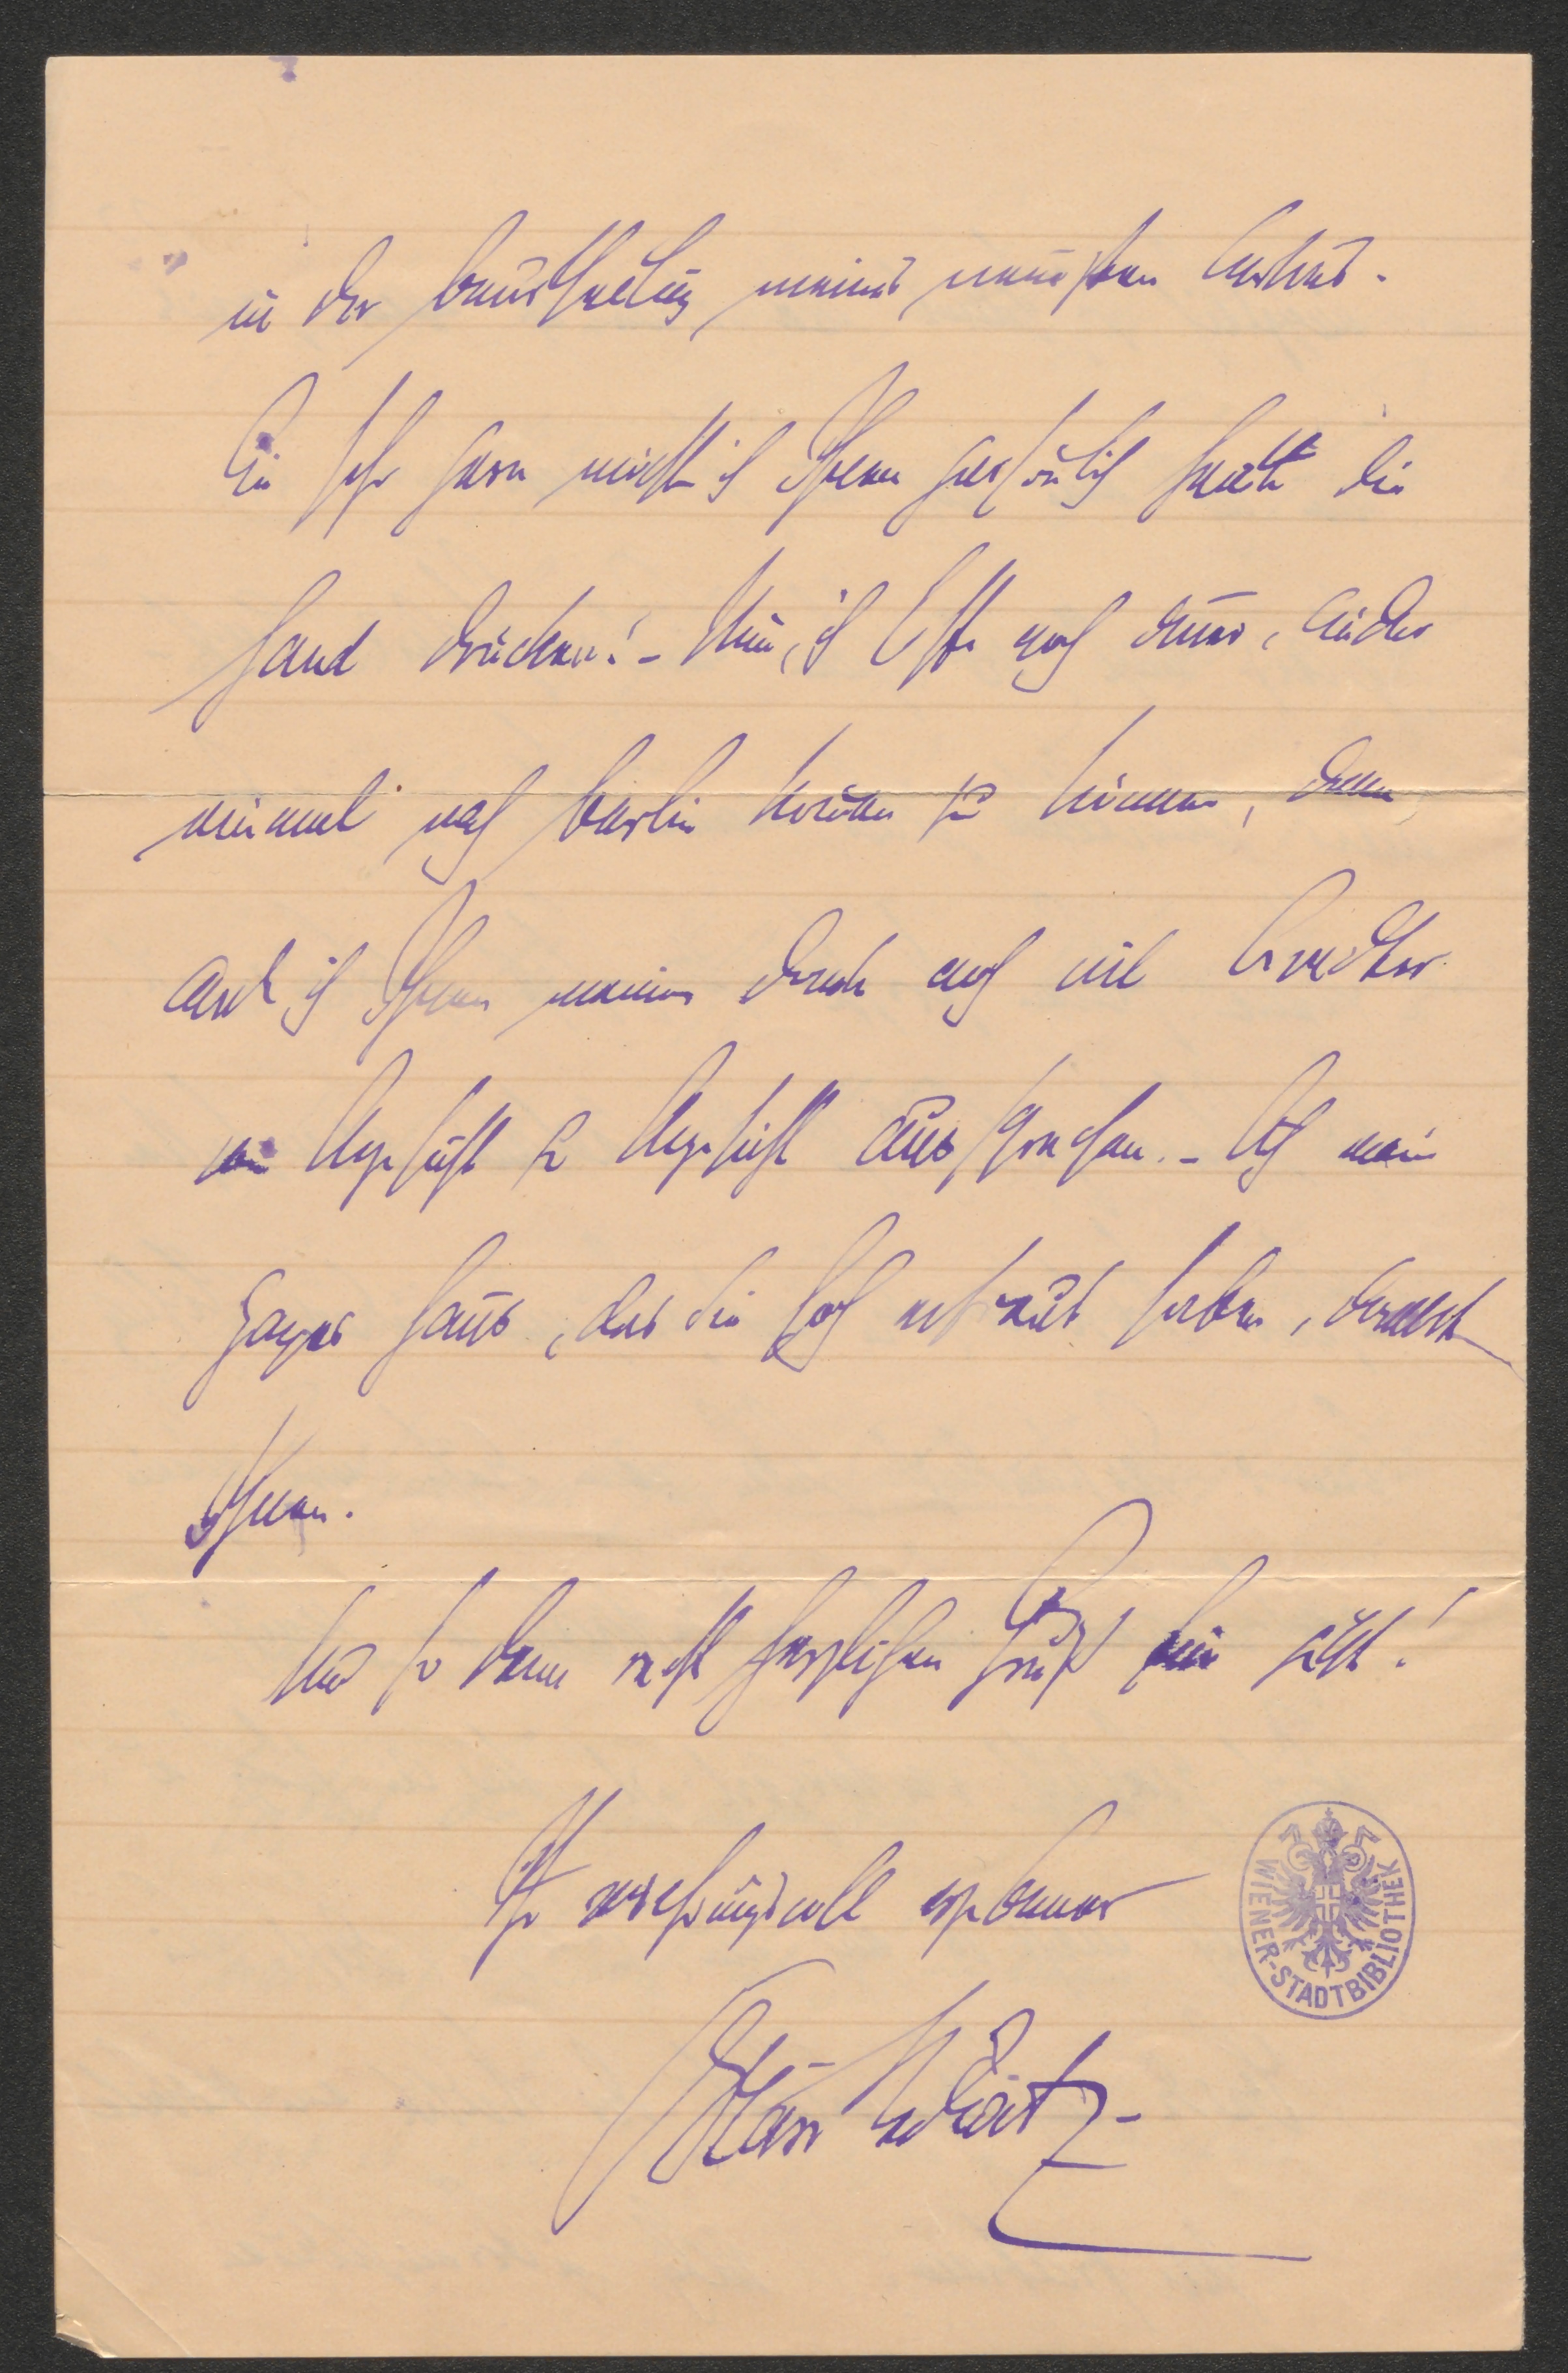 in der Beurtheilung meines neuesten Werkes.
Wie sehr gern möcht ich Ihnen persönlich heute die
Hand drücken! – Nun, ich hoffe noch immer, wieder
einmal nach Berlin kommen zu können, denn
werd ich Ihnen meinen Dank auch viel beredter
von Angesicht zu Angesicht aussprechen. – Ach mein
ganzes Haus, das Sie hoch erfreut haben, dankt
Ihnen.
Und so denn recht herzlichen Gruß
Ihr verehrungsvoll ergebener
WIENER-STADTBIBLIOTHEK